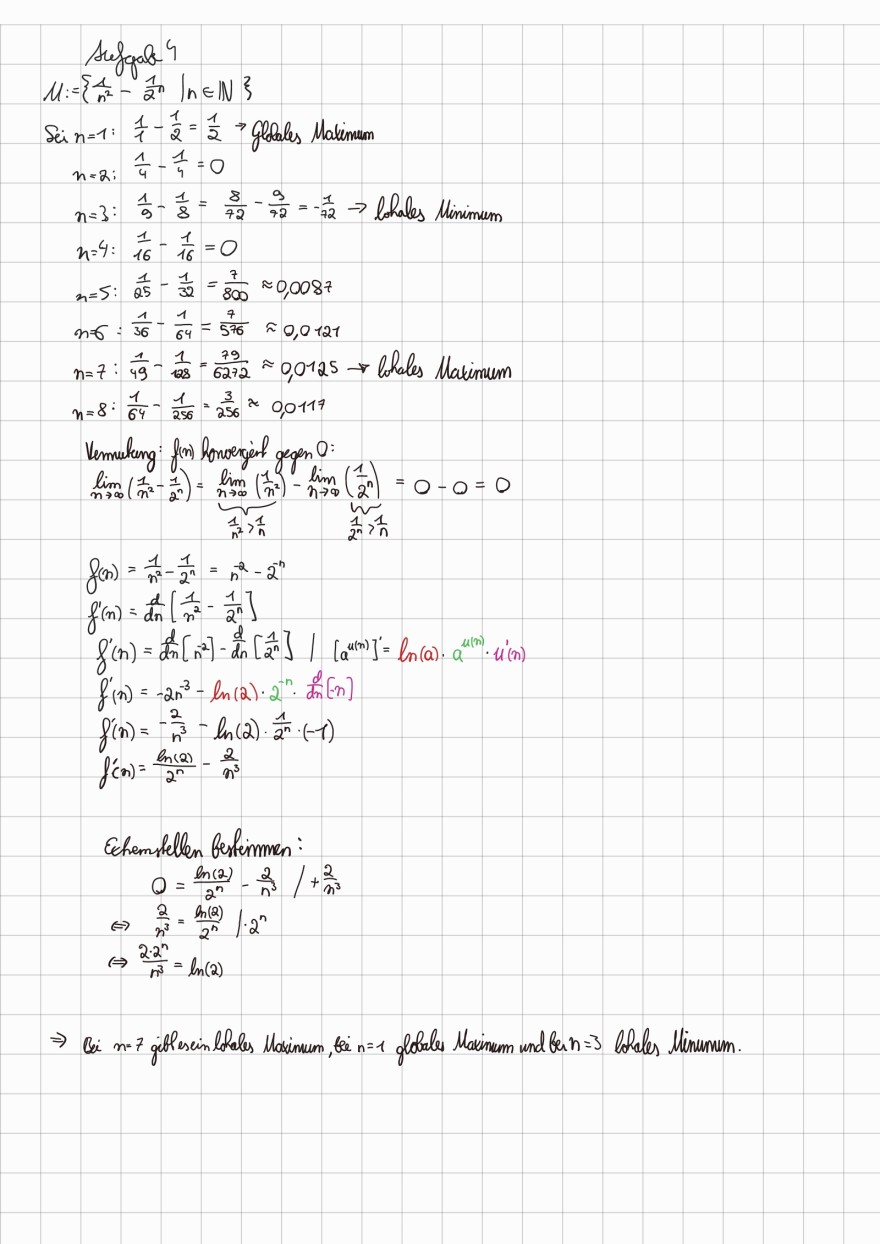 Aufgabe 4
M:={1/n² - 1/2ⁿ | n ∈ ℕ}
Sei n=1: 1/1 - 1/2 = 1/2 → Globales Maximum
n=2: 1/4 - 1/4 = 0
n=3: 1/9 - 1/8 = 8/72 - 9/72 = -1/72 → lokales Minimum
n=4: 1/16 - 1/16 = 0
n=5: 1/25 - 1/32 = 7/800 ≈ 0,0087
n=6: 1/36 - 1/64 = 7/576 ≈ 0,0121
n=7: 1/49 - 1/128 = 79/6272 ≈ 0,0125 → lokales Maximum
n=8: 1/64 - 1/256 = 3/256 ≈ 0,0117
Vermutung: f(n) konvergiert gegen 0:
lim n→∞ (1/n² - 1/2ⁿ) = lim n→∞ (1/n²) - lim n→∞ (1/2ⁿ) = 0 - 0 = 0
1/n² > 1/n 1/2ⁿ > 1/n
f(n) = 1/n² - 1/2ⁿ = n⁻² - 2⁻ⁿ
f'(n) = d/dn [1/n² - 1/2ⁿ]
f'(n) = d/dn [n⁻²] - d/dn [1/2ⁿ] | [a^u(n)]' = ln(a) · a^u(n) · u'(n)
f'(n) = -2n⁻³ - ln(2) · 2⁻ⁿ · d/dn [-n]
f'(n) = -2/n³ - ln(2) · 1/2ⁿ · (-1)
f'(n) = ln(2)/2ⁿ - 2/n³
Extremstellen bestimmen:
0 = ln(2)/2ⁿ - 2/n³ | + 2/n³
⇔ 2/n³ = ln(2)/2ⁿ | · 2ⁿ
⇔ 2·2ⁿ/n³ = ln(2)
⇒ Bei n=7 gibt es ein lokales Maximum, bei n=1 globales Maximum und bei n=3 lokales Minumum.